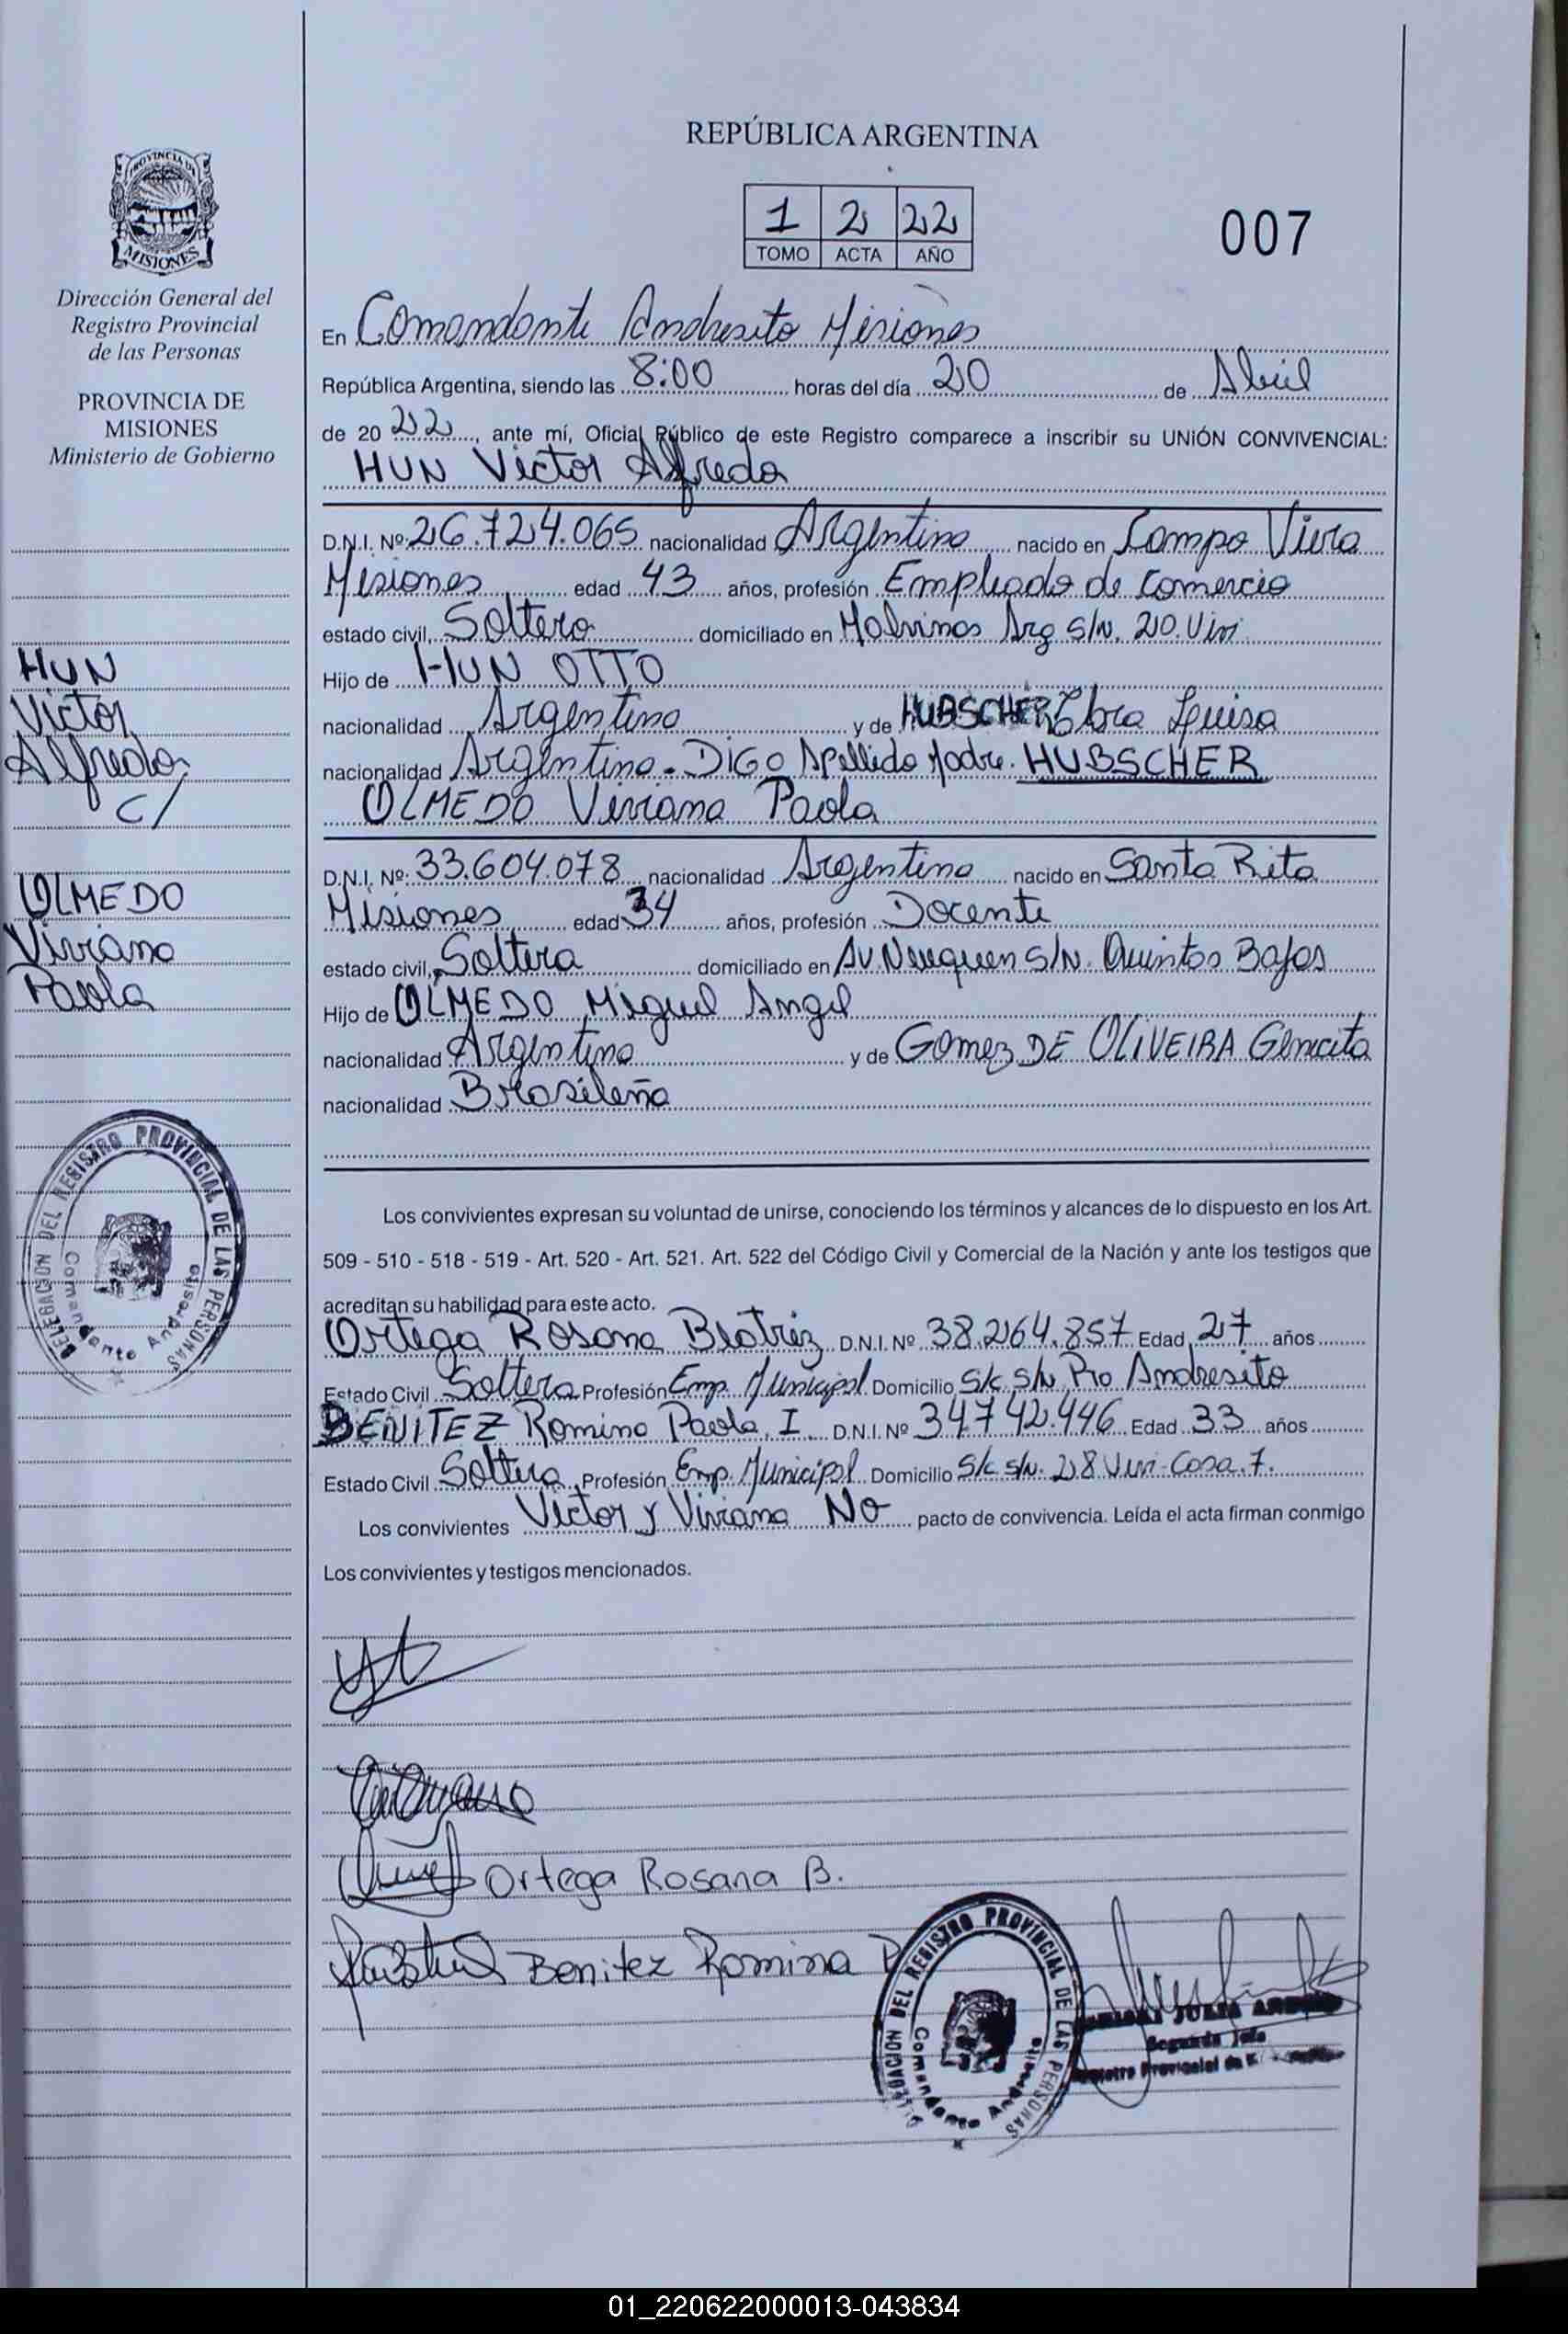 REPÚBLICA ARGENTINA
1 2 22
TOMO ACTA AÑO
007
PROVINCIA DE
MISIONES
Dirección General del
Registro Provincial
de las Personas
PROVINCIA DE
MISIONES
Ministerio de Gobierno
HUN
Victor
Alfredo
C/
OLMEDO
Viviana
Paola
DELEGACIÓN DEL REGISTRO PROVINCIAL DE LAS PERSONAS
Comandante Andresito
En Comandante Andresito Misiones
República Argentina, siendo las 8:00 horas del día 20 de Abril
de 20 22, ante mí, Oficial Público de este Registro comparece a inscribir su UNIÓN CONVIVENCIAL:
HUN Victor Alfredo
D.N.I. Nº 26.724.065 nacionalidad Argentino nacido en Campo Viera
Misiones edad 43 años, profesión Empleado de Comercio
estado civil, Soltero domiciliado en Malvinas Arg S/N. 20 Vivi
Hijo de HUN OTTO
nacionalidad Argentino y de HUBSCHER Luisa
nacionalidad Argentina. DIGO Apellido Madre. HUBSCHER
OLMEDO Viviana Paola
D.N.I. Nº: 33.604.078 nacionalidad Argentina nacido en Santa Rita
Misiones edad 34 años, profesión Docente
estado civil, Soltera domiciliado en Av. Neuquen S/N. Quintas Bajas
Hijo de OLMEDO Miguel Angel
nacionalidad Argentino y de Gomez DE OLIVEIRA
nacionalidad Brasileña
Los convivientes expresan su voluntad de unirse, conociendo los términos y alcances de lo dispuesto en los Art.
509 - 510 - 518 - 519 - Art. 520 - Art. 521. Art. 522 del Código Civil y Comercial de la Nación y ante los testigos que
acreditan su habilidad para este acto.
Ortega Rosana Beatriz D.N.I. Nº 38.264.857 Edad 27 años
Estado Civil Soltera Profesión Emp. Municipal Domicilio S/C S/N Pto Andresito
BENITEZ Romina Paola I. D.N.I. Nº 34742.446 Edad 33 años
Estado Civil Soltera Profesión Emp. Municipal Domicilio S/C S/N. 28 Vivi-Casa.7.
Los convivientes Victor y Viviana No pacto de convivencia. Leída el acta firman conmigo
Los convivientes y testigos mencionados.
Ortega Rosana B.
Benitez Romina P
DELEGACIÓN DEL REGISTRO PROVINCIAL DE LAS PERSONAS
Comandante Andresito
JULIA
Segunda Jefa
Registro Provincial de
01_220622000013-043834